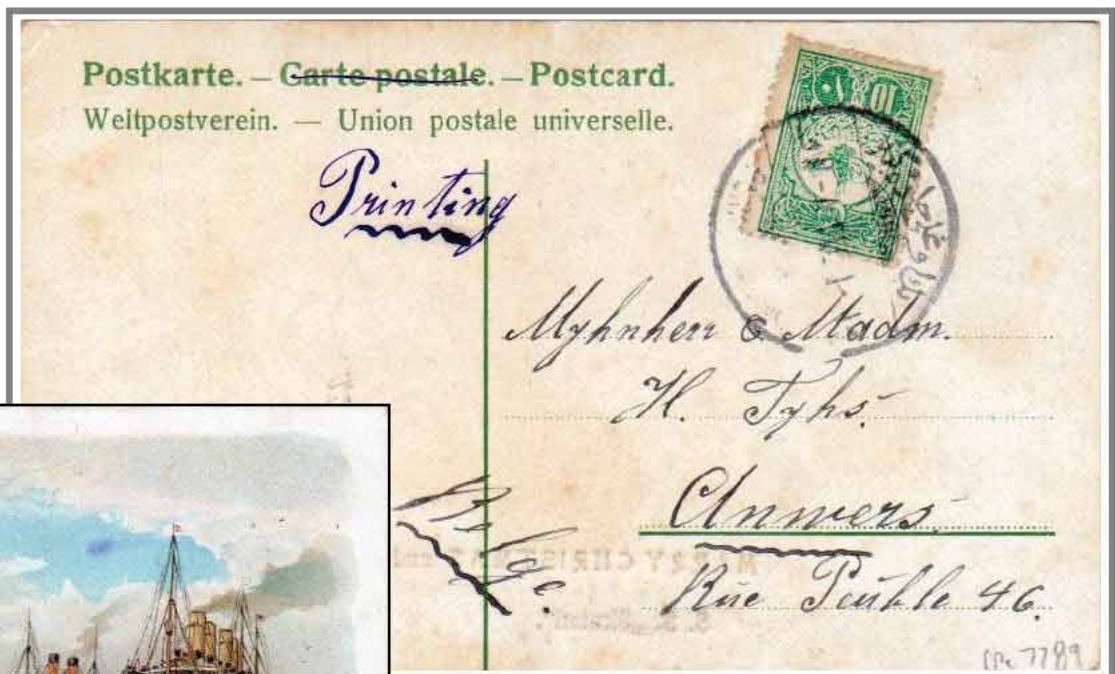 Postkarte. – Carte postale. – Postcard.
Weltpostverein. — Union postale universelle.
Printing
10
Myhnherr & Madm.
H. Tyhs.
Anvers.
Belge.
Rue 46
7789